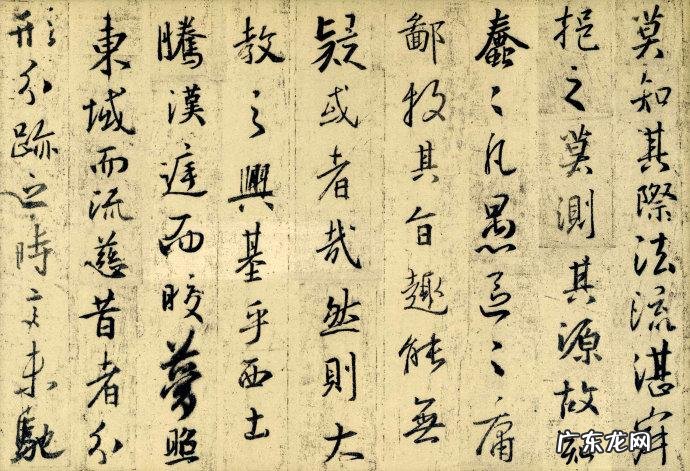 莫知其際法流湛寂
挹之莫測其源故知
蠢々凡愚區々庸
鄙投其旨趣能無
疑或者哉然則大
教之興基乎西土
騰漢庭而皎夢照
東域而流慈昔者分
形分跡之時言未馳
广东龙网